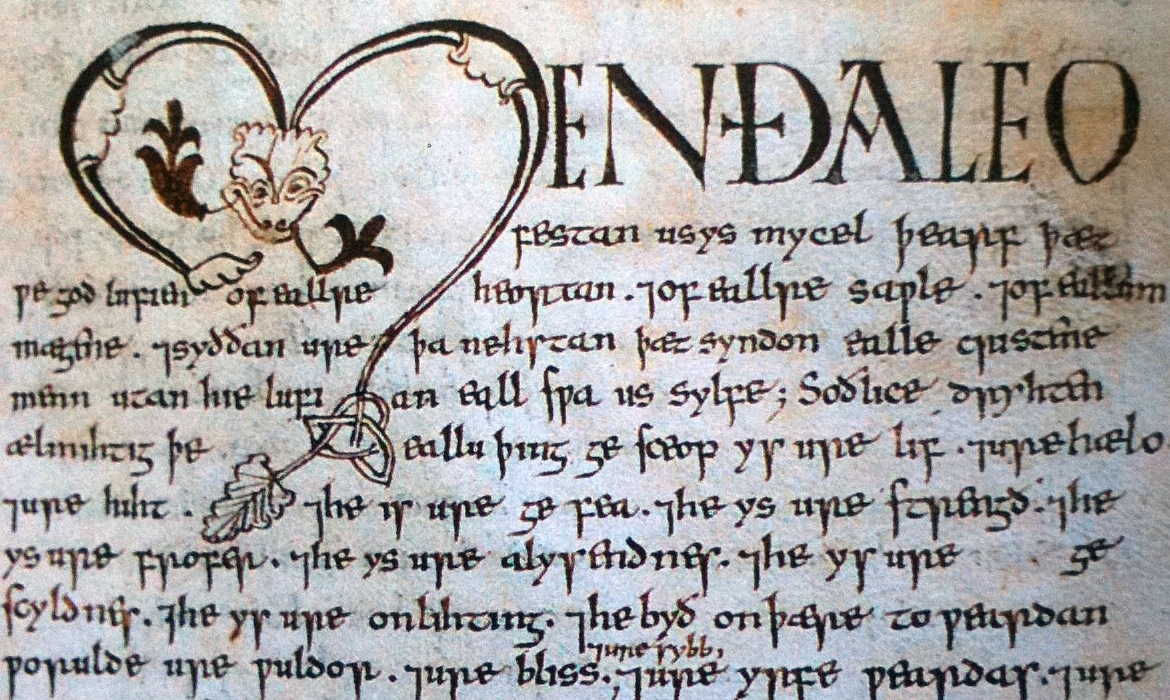 MENÐALEO
festan us ys mycel þearf þæt
ƿe god lufien of eallre heortan . ⁊of eallre saƿle . ⁊of eallum
mægñe . ⁊syððan ure þa nehstan þæt syndon ealle cristñe
menn utan hie lufi an eall sƿa us sylfe; Soðlice dryhten
ælmihtig þe eallu þing ge sceop ys ure lif . ⁊ure hælo
⁊ure hiht . ⁊he is ure ge fea . ⁊he ys ure strengð . ⁊he
ys ure frofer . ⁊he ys ure alysendnes . ⁊he ys ure ge
scyldnes . ⁊he ys ure onlihting . ⁊he byð on þære to ƿeardan
⁊ure sybb,
ƿorulde ure ƿuldor . ⁊ure bliss . ⁊ure yrfe ƿeardas . ⁊ure